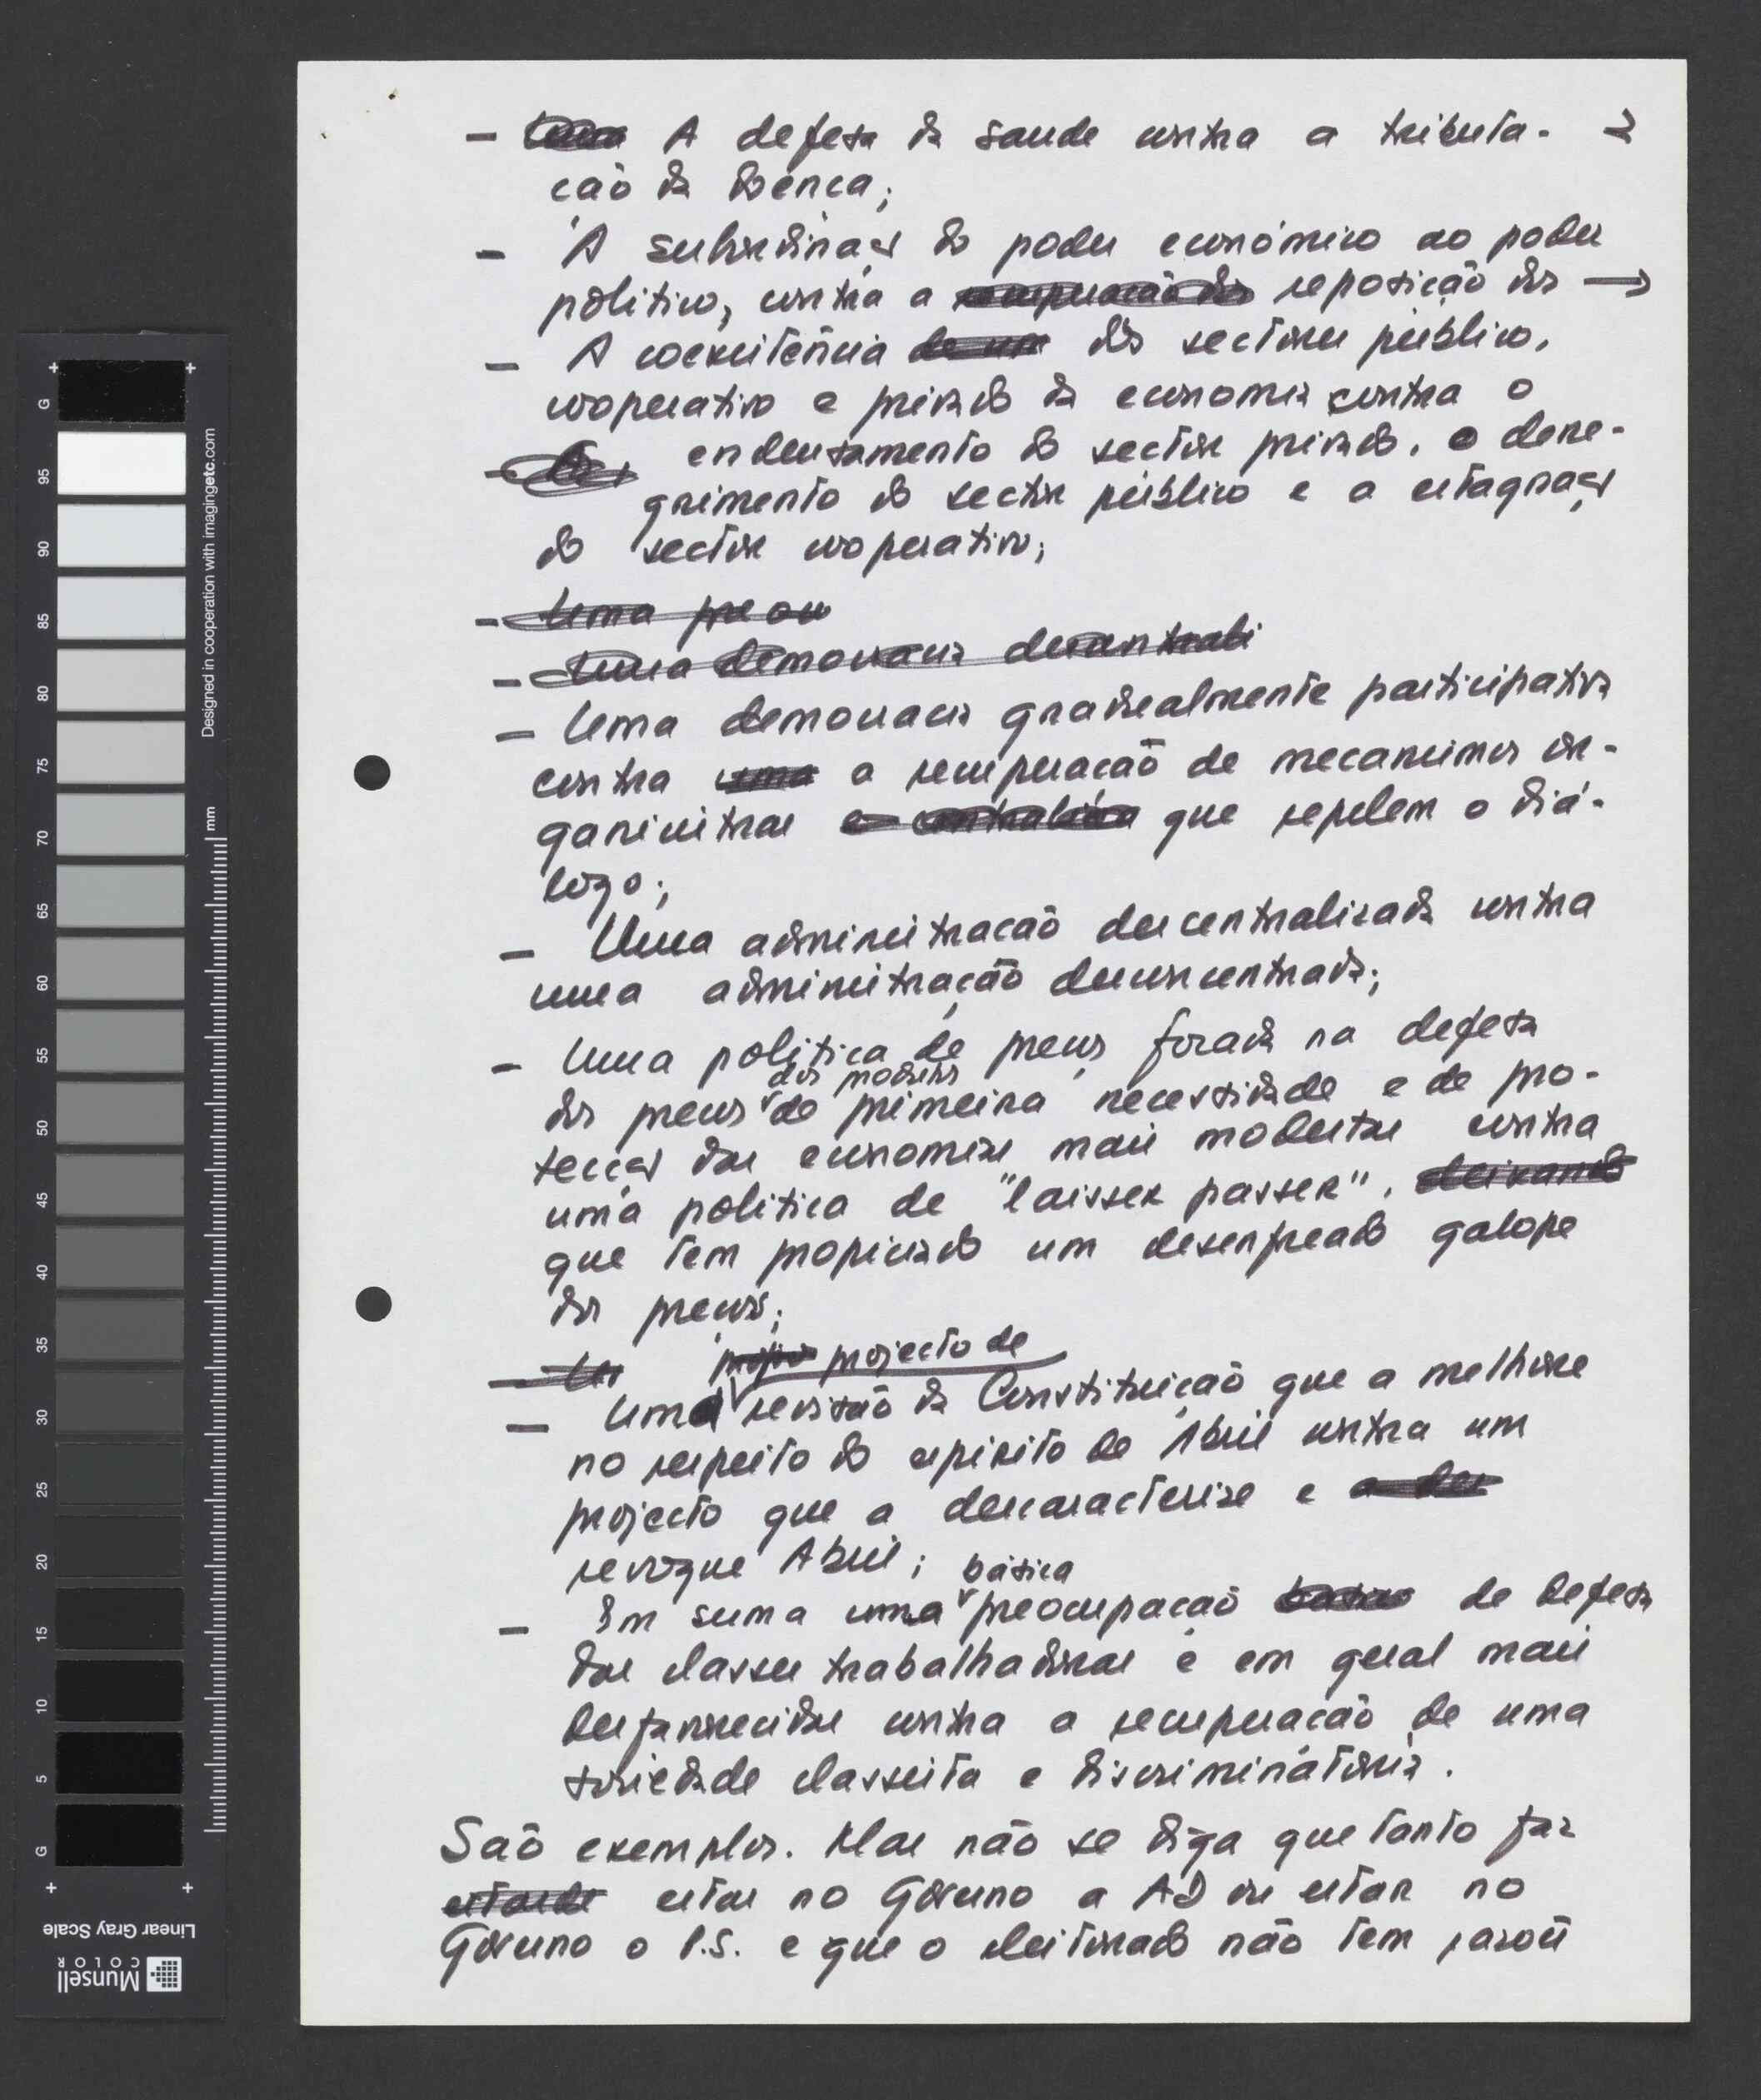 - Uma A defesa da saude contra a tributa-
ção da doença;
- A subordinação do poder económico ao poder
politico, contra a recuperação dos reposição dos →
- A coexistência de um dos sectores público,
cooperativo e privado da economia contra o
endeusamento do sector privado, o dene-
grimento do sector público e a estagnação
do sector cooperativo;
- Uma preou
- Uma democracia descentrali
- Uma democracia gradualmente participativa
contra uma a recuperação de mecanismos or-
ganicistas e que repelem o diá-
logo;
- Uma administração descentralizada contra
uma administração desconcentrada;
- Uma politica de preços forada na defesa
dos produtos
dos preços de primeira necessidade e de pro-
tecção das economias mais modestas contra
uma politica de "laisser passer", deixando
que tem propiciado um desenfreado galope
dos preços;
- Um projecto de
- Uma revisão da Constituição que a melhore
no respeito do espirito de Abril contra um
projecto que a descaracterize e a des
revogue Abril;
básica
- Em suma uma preocupação básica de defesa
das classes trabalhadoras e em geral mais
desfavorecidas contra a recuperação de uma
sociedade classista e discriminatória.
São exemplos. Mas não se diga que tanto faz
estarde estar no Governo a AD ou estar no
Governo o P.S. e que o eleitorado não tem razões
Designed in cooperation with imagingetc.com
mm
G 95 90 85 80 75 70 65 60 55 50 45 40 35 30 25 20 15 10 5 G
Linear Gray Scale
Munsell
COLOR